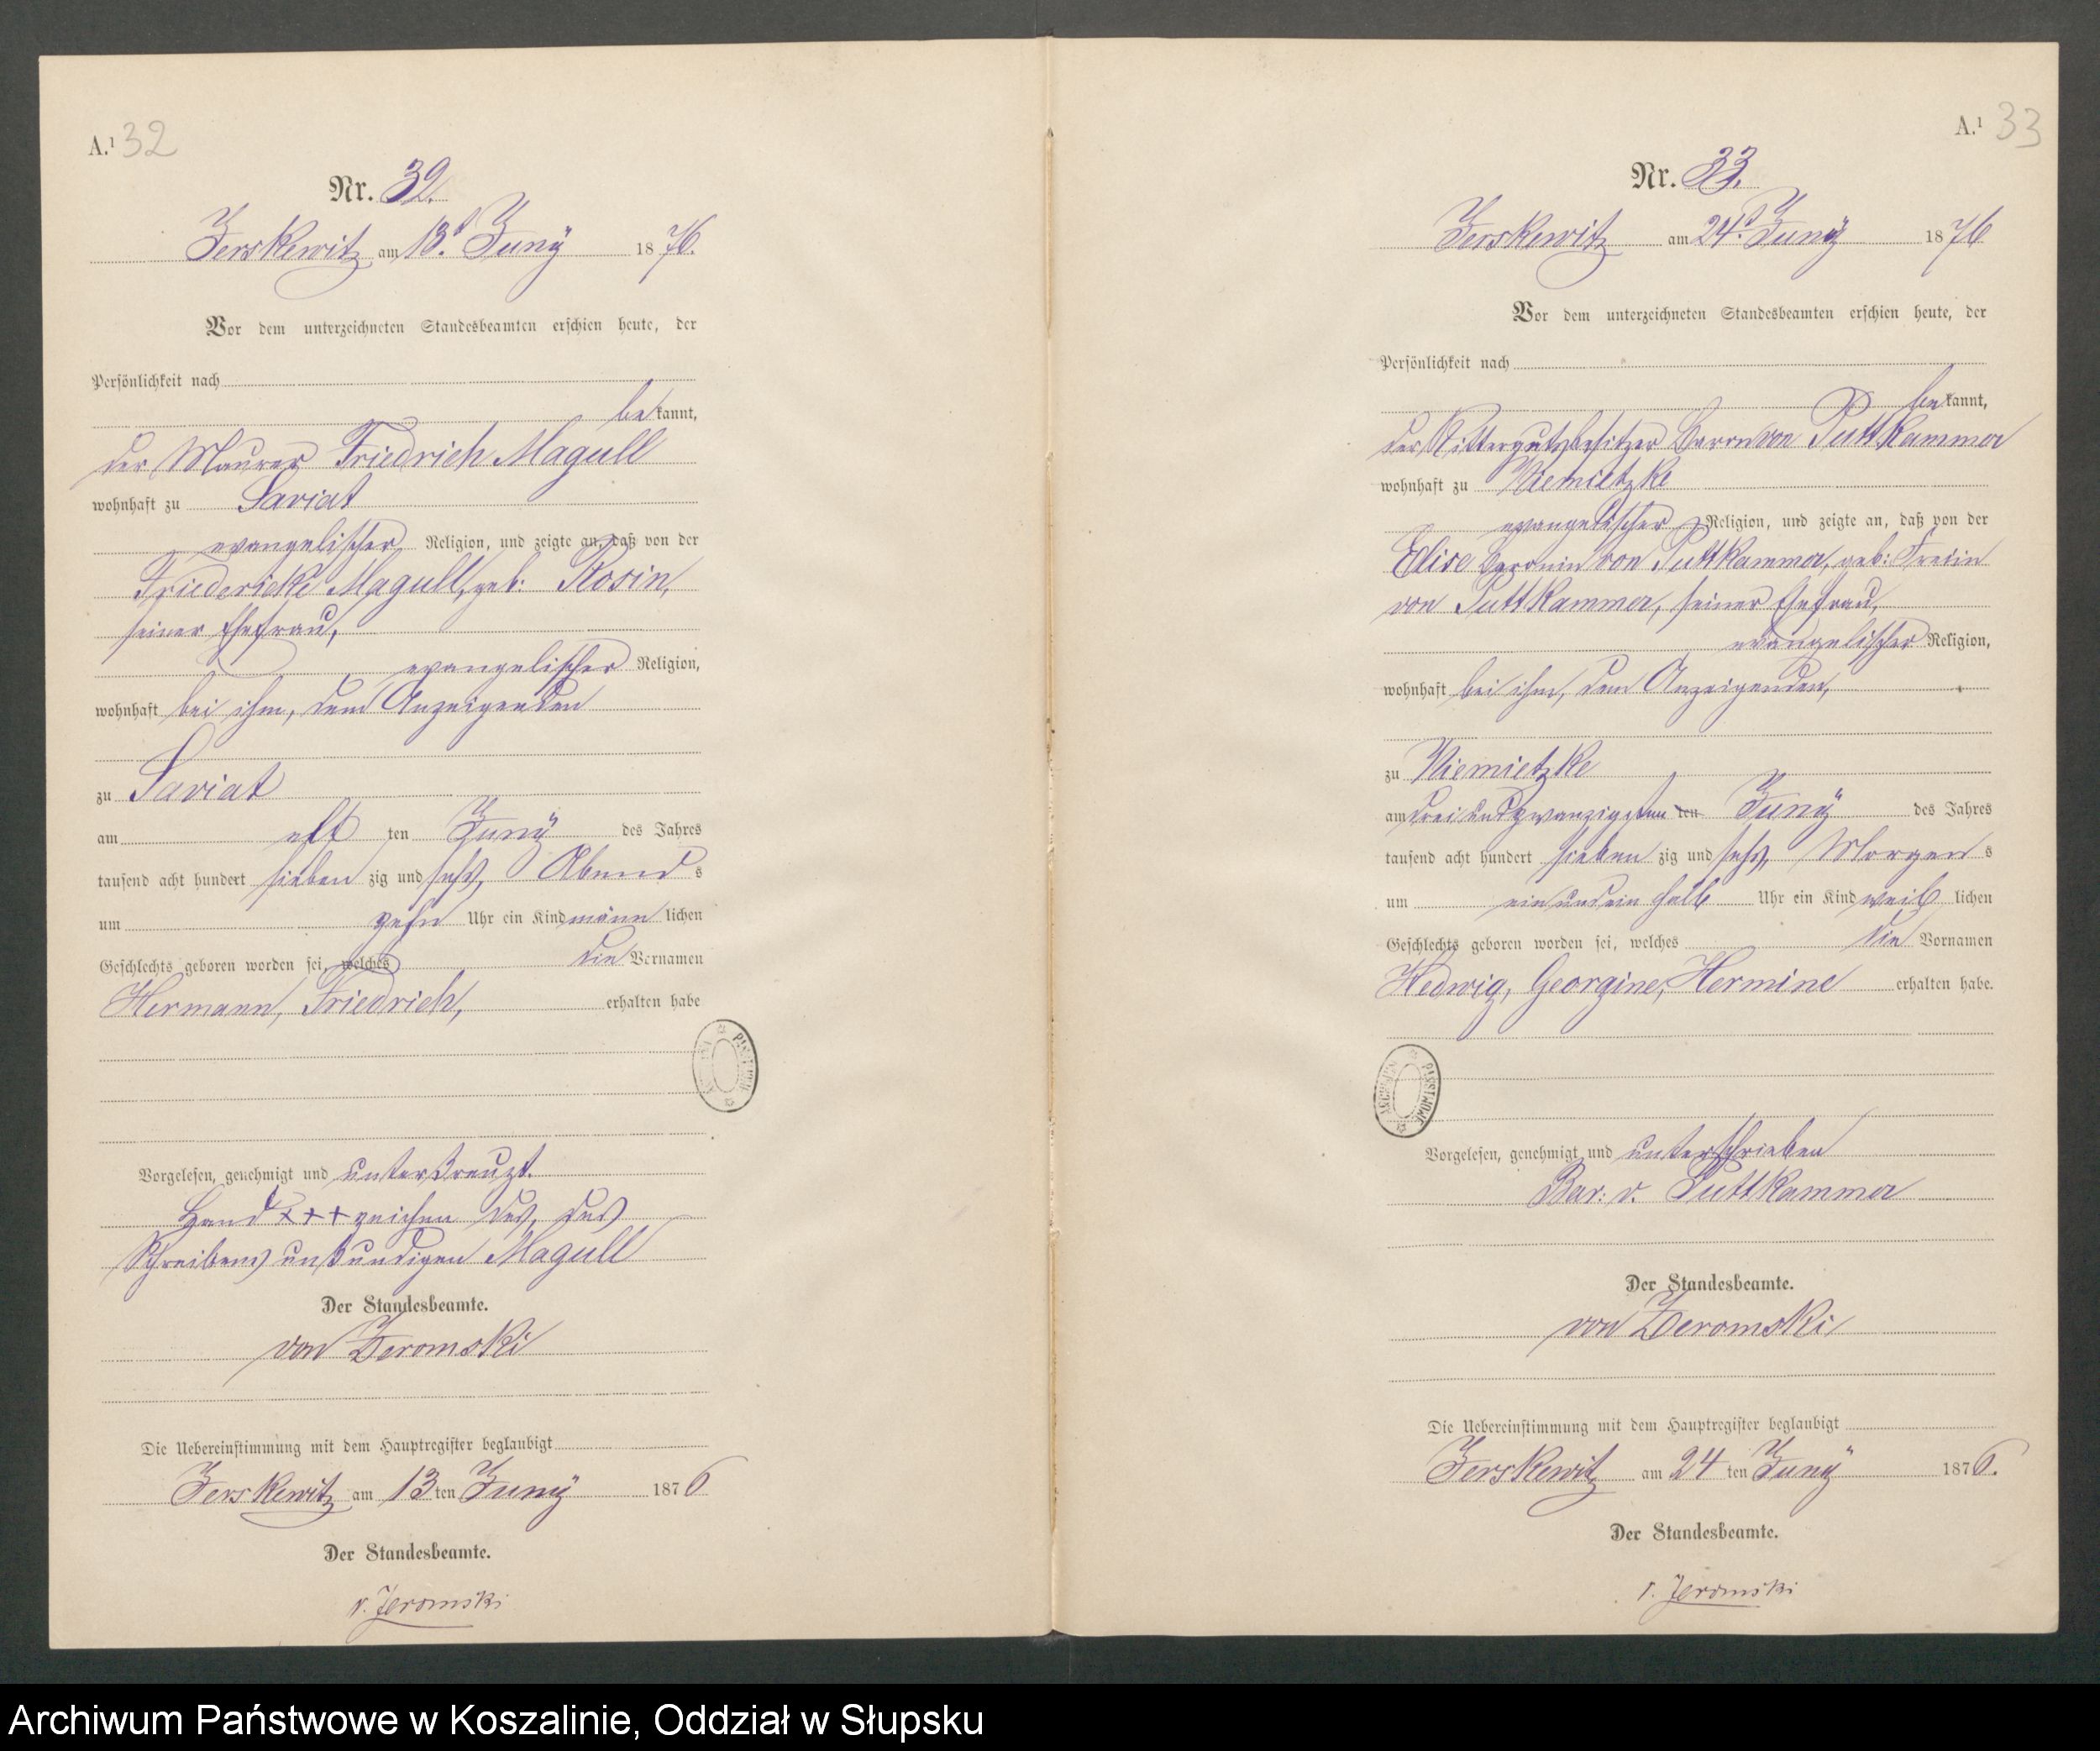 A.¹ 32
Nr. 32.
Jerskewitz am 13.t Juny 1876.
Vor dem unterzeichneten Standesbeamten erschien heute, der
Persönlichkeit nach
bekannt,
der Maurer Friedrich Magull
wohnhaft zu Saviat
evangelischer Religion, und zeigte an, daß von der
Friedericke Magull, geb: Rosin,
seiner Ehefrau,
evangelischer Religion,
wohnhaft bei ihm, dem Anzeigenden
zu Saviat
am elf ten Juny des Jahres
tausend acht hundert sieben zig und sechs, Abends
um zehn Uhr ein Kind männlichen
Geschlechts geboren worden sei, welches die Vornamen
Hermann, Friedrich, erhalten habe
Vorgelesen, genehmigt und unterkreuzt.
Hand +++ zeichen des, des
Schreibens unkundigen Magull
Der Standesbeamte.
von Zeromski
Die Uebereinstimmung mit dem Hauptregister beglaubigt
Jerskewitz am 13 ten Juny 1876
Der Standesbeamte.
v. Zeromski
A.¹ 33
Nr. 33.
Jerskewitz am 24.t Juny 1876
Vor dem unterzeichneten Standesbeamten erschien heute, der
Persönlichkeit nach
bekannt,
der Rittergutsbesitzer Baron von Puttkammer
wohnhaft zu Niemietzke
evangelischer Religion, und zeigte an, daß von der
Elise Baronin von Puttkammer, geb: Freiin
von Puttkammer, seiner Ehefrau,
evangelischer Religion,
wohnhaft bei ihm, dem Anzeigenden,
zu Niemietzke
am dreiundzwanzigsten ten Juny des Jahres
tausend acht hundert sieben zig und sechs, Morgens
um ein und ein halb Uhr ein Kind weiblichen
Geschlechts geboren worden sei, welches die Vornamen
Hedwig, Georgine, Hermine erhalten habe.
ARCHIWUM PAŃSTWOWE
Vorgelesen, genehmigt und unterschrieben
Bar: v. Puttkammer
Der Standesbeamte.
von Zeromski
Die Uebereinstimmung mit dem Hauptregister beglaubigt
Jerskewitz am 24 ten Juny 1876.
Der Standesbeamte.
v. Zeromski
Archiwum Państwowe w Koszalinie, Oddział w Słupsku